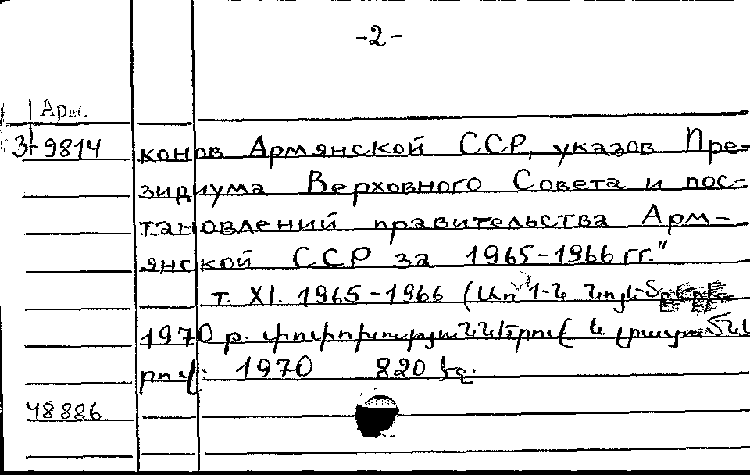 -2-
Арм.
3-9814
конов Армянской ССР, указов Пре-
зидиума Верховного Совета и пос-
тановлений правительства Арм-
янской ССР за 1965-1966 гг."
т. XI. 1965-1966 (Առ 1-ն
1970 թ. փոփոխություններով և լրացում՟նե
րով. 1970 820 էջ.
48826